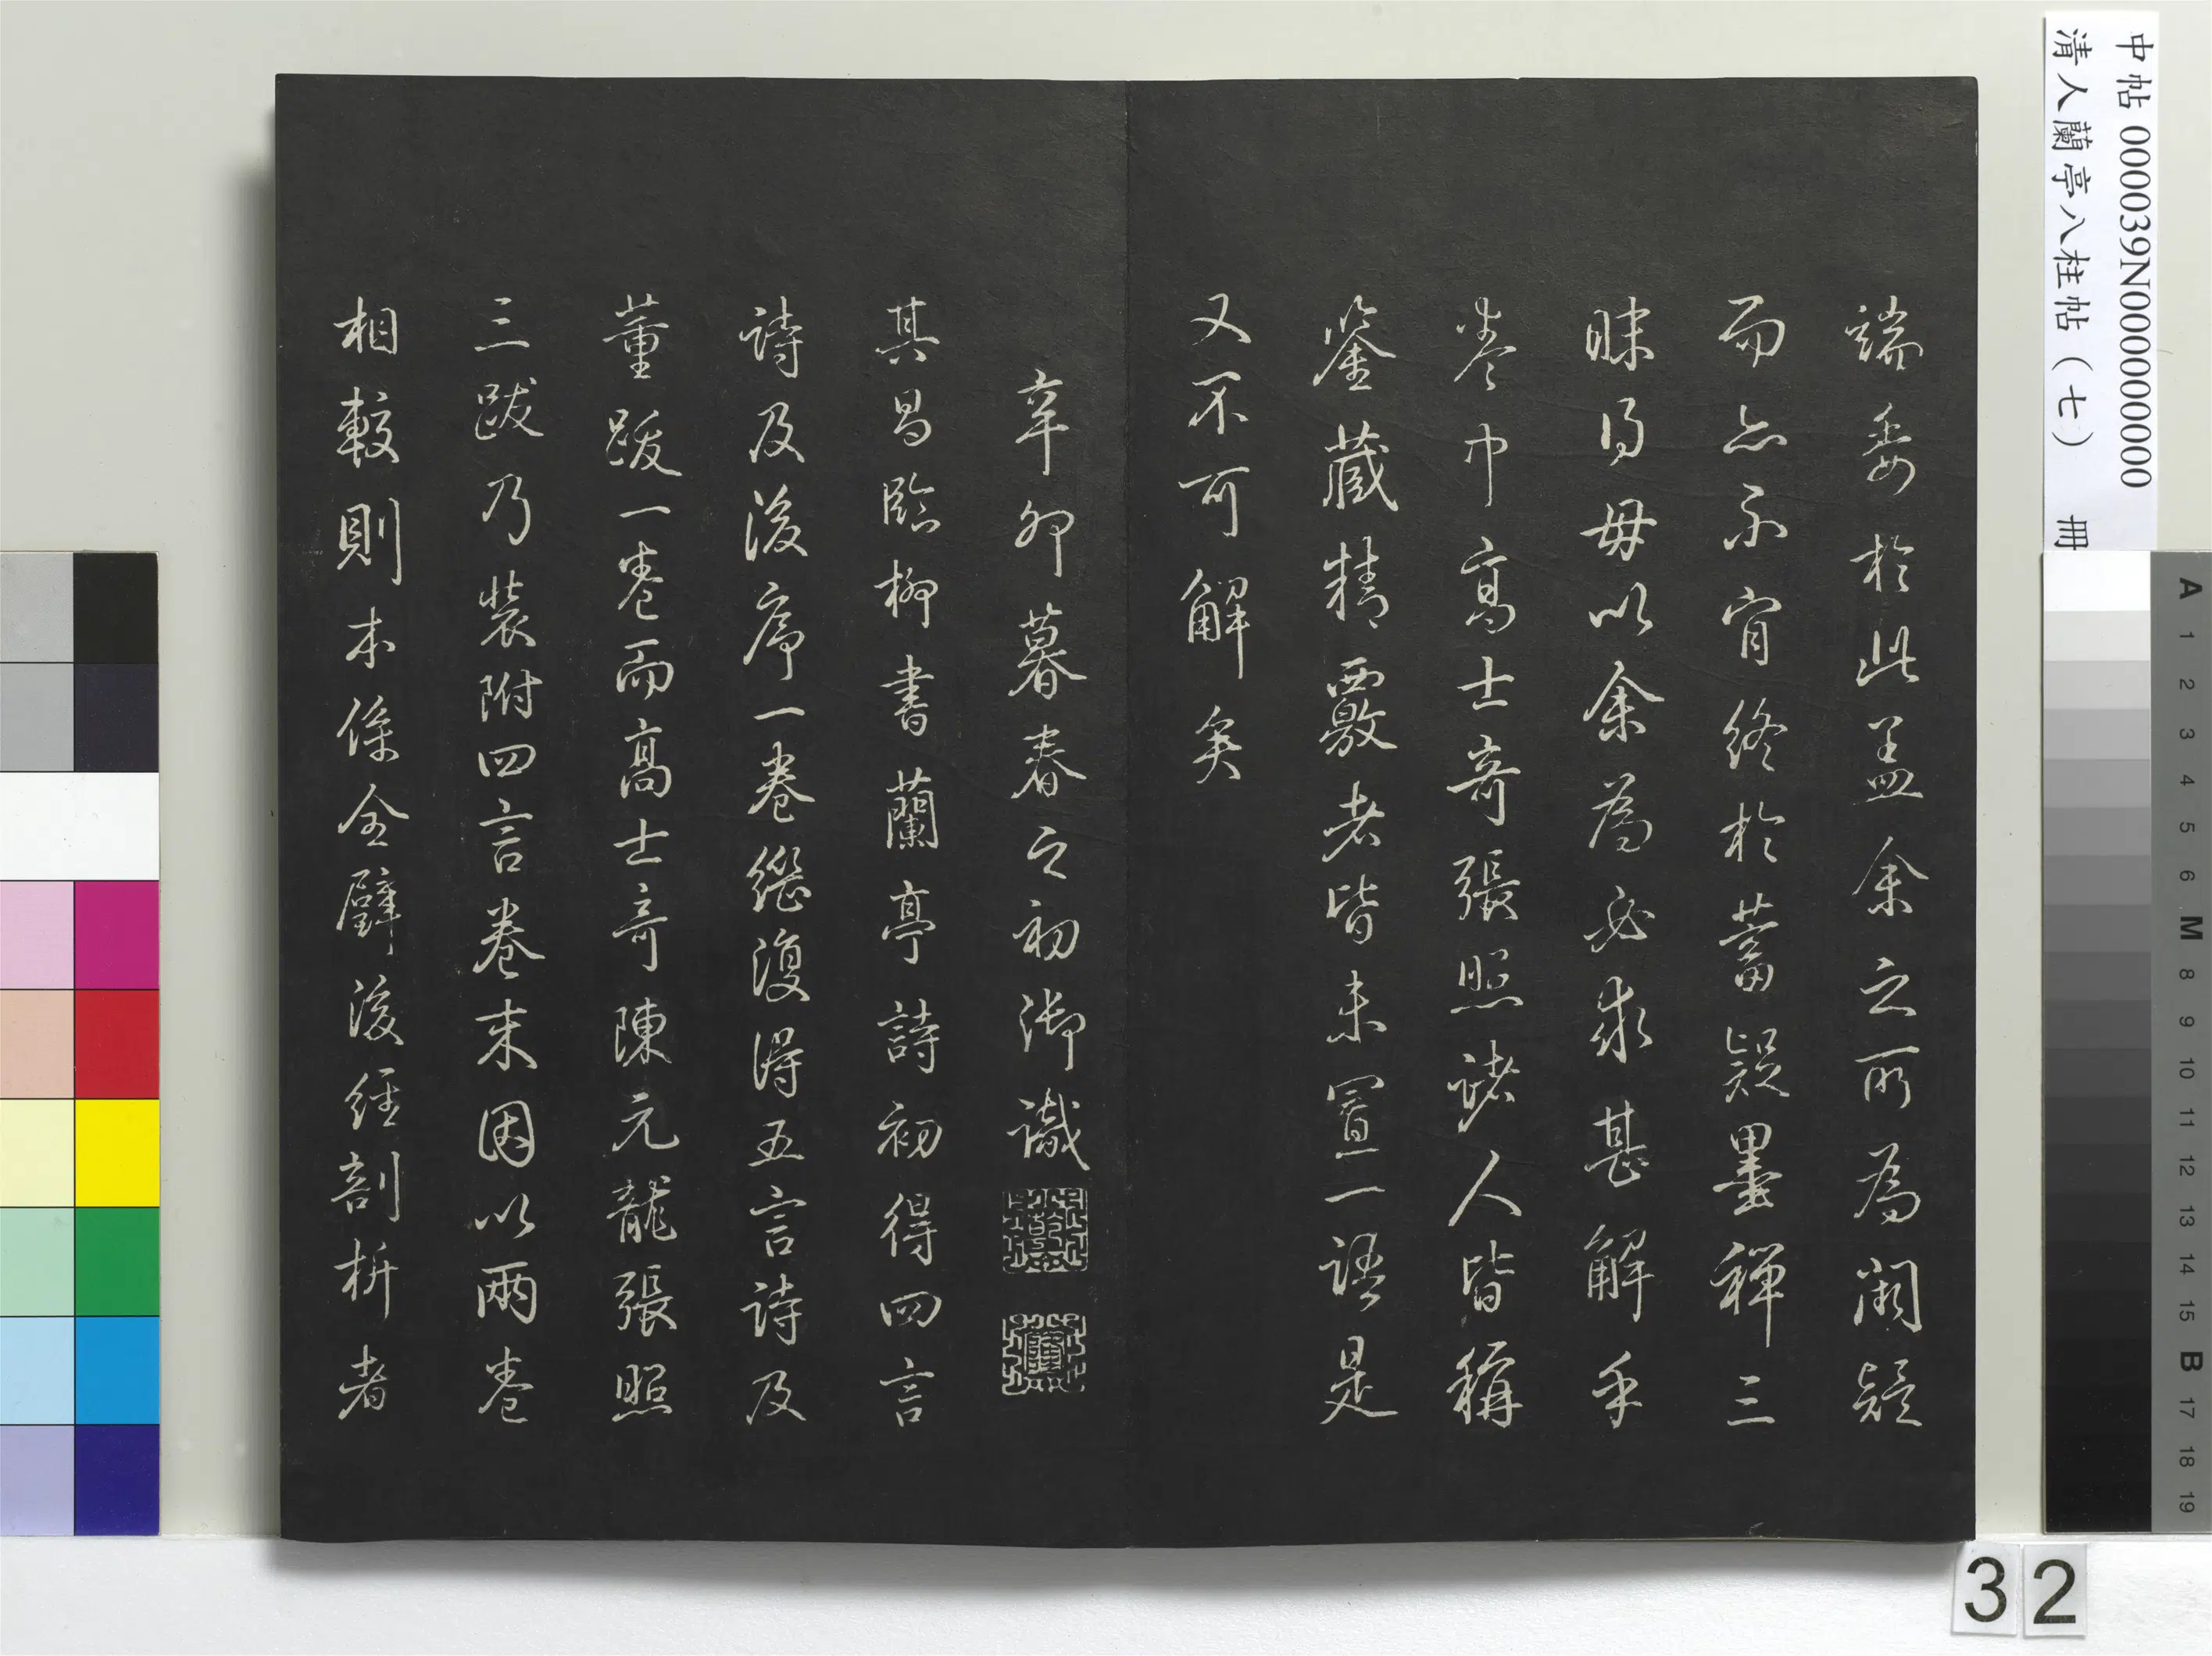 中帖 000039N000000000
清人蘭亭八柱帖（七） 冊
端委於此蓋余之所為闕疑
而亦不肯終於蓄疑墨禪三
昧得毋以余為必求甚解乎
卷中高士奇張照諸人皆稱
鑒藏精覈者皆未置一語是
又不可解矣
辛卯暮春之初御識
其昌臨柳書蘭亭詩初得四言
詩及後序一卷繼復得五言詩及
董跋一卷而高士奇陳元龍張照
三跋乃裝附四言卷末因以兩卷
相較則本係全璧後經剖析者
A 1 2 3 4 5 6 M 8 9 10 11 12 13 14 15 B 17 18 19
32